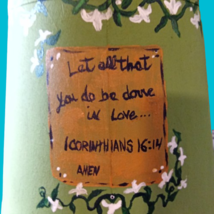 Let all that
you do be done
in Love...
1 CORINTHIANS 16:14
AMEN